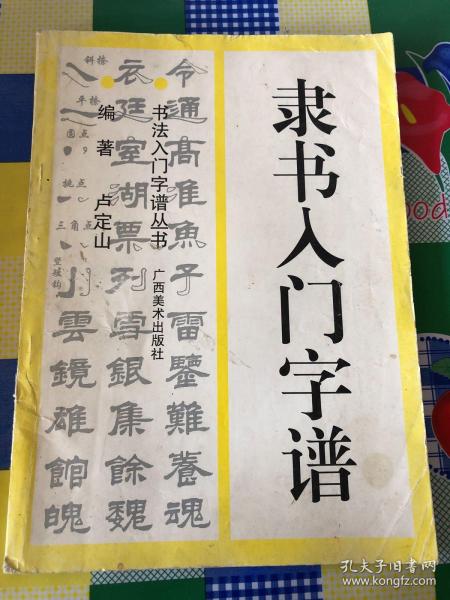 隶书入门字谱
书法入门字谱丛书
广西美术出版社
编著 卢定山
令通高淮魚子雷鑒難養魂
衣廷室湖票列雪銀集餘魏
雲鏡雄館魄
斜捺
平捺
圆点
挑点
三角点
竖弯钩
ood
孔夫子旧书网
www.kongfz.com